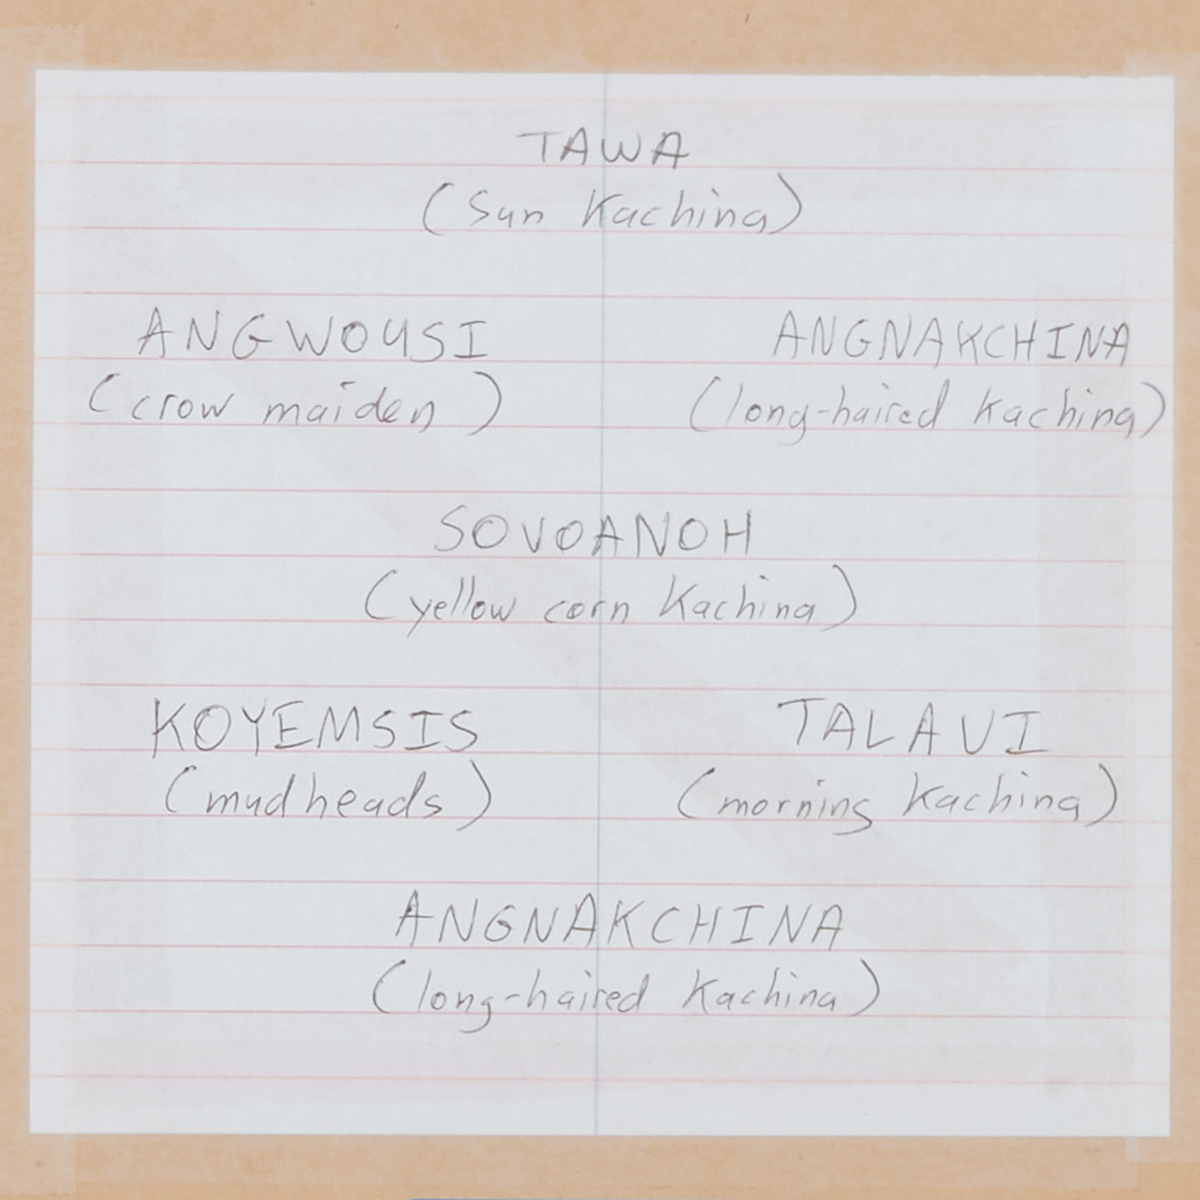 TAWA
(Sun Kachina)
ANGWOUSI
ANGNAKCHINA
(crow maiden)
(long-haired Kachina)
SOVOANOH
(yellow corn Kachina)
KOYEMSIS
TALAVI
(mudheads)
(morning Kachina)
ANGNAKCHINA
(long-haired Kachina)